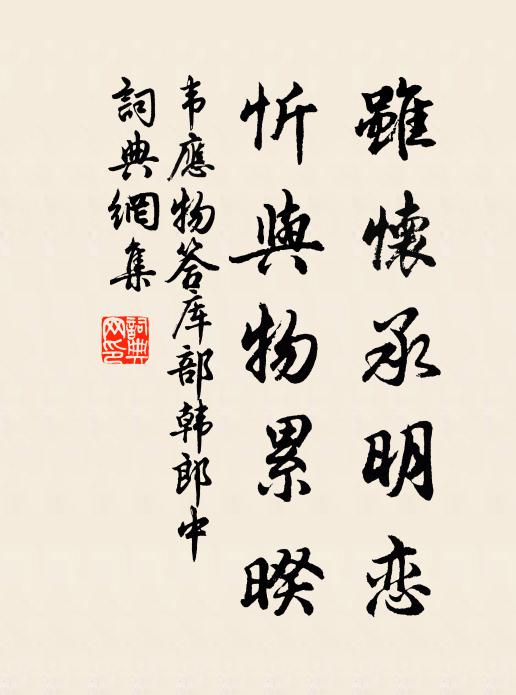 雖懷承明恋
忻與物累暌
韦應物答库部韩郎中
詞典網集
詞典
网印